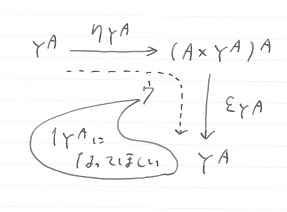 Y^A ηY^A (A×Y^A)^A
εY^A
1Y^Aに
なってほしい
Y^A